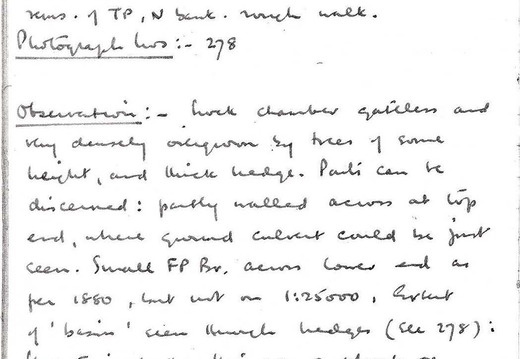 rems. of TP, N bank. rough walk.
Photograph nos :- 278
Observation :- Lock chamber gateless and
very densely overgrown by trees of some
height, and thick hedge. Parts can be
discerned : partly walled across at top
end, where ground culvert could be just
seen. Small FP Br. across lower end as
per 1880, but not on 1:25000. Extent
of 'basin' seen through hedges (see 278) :